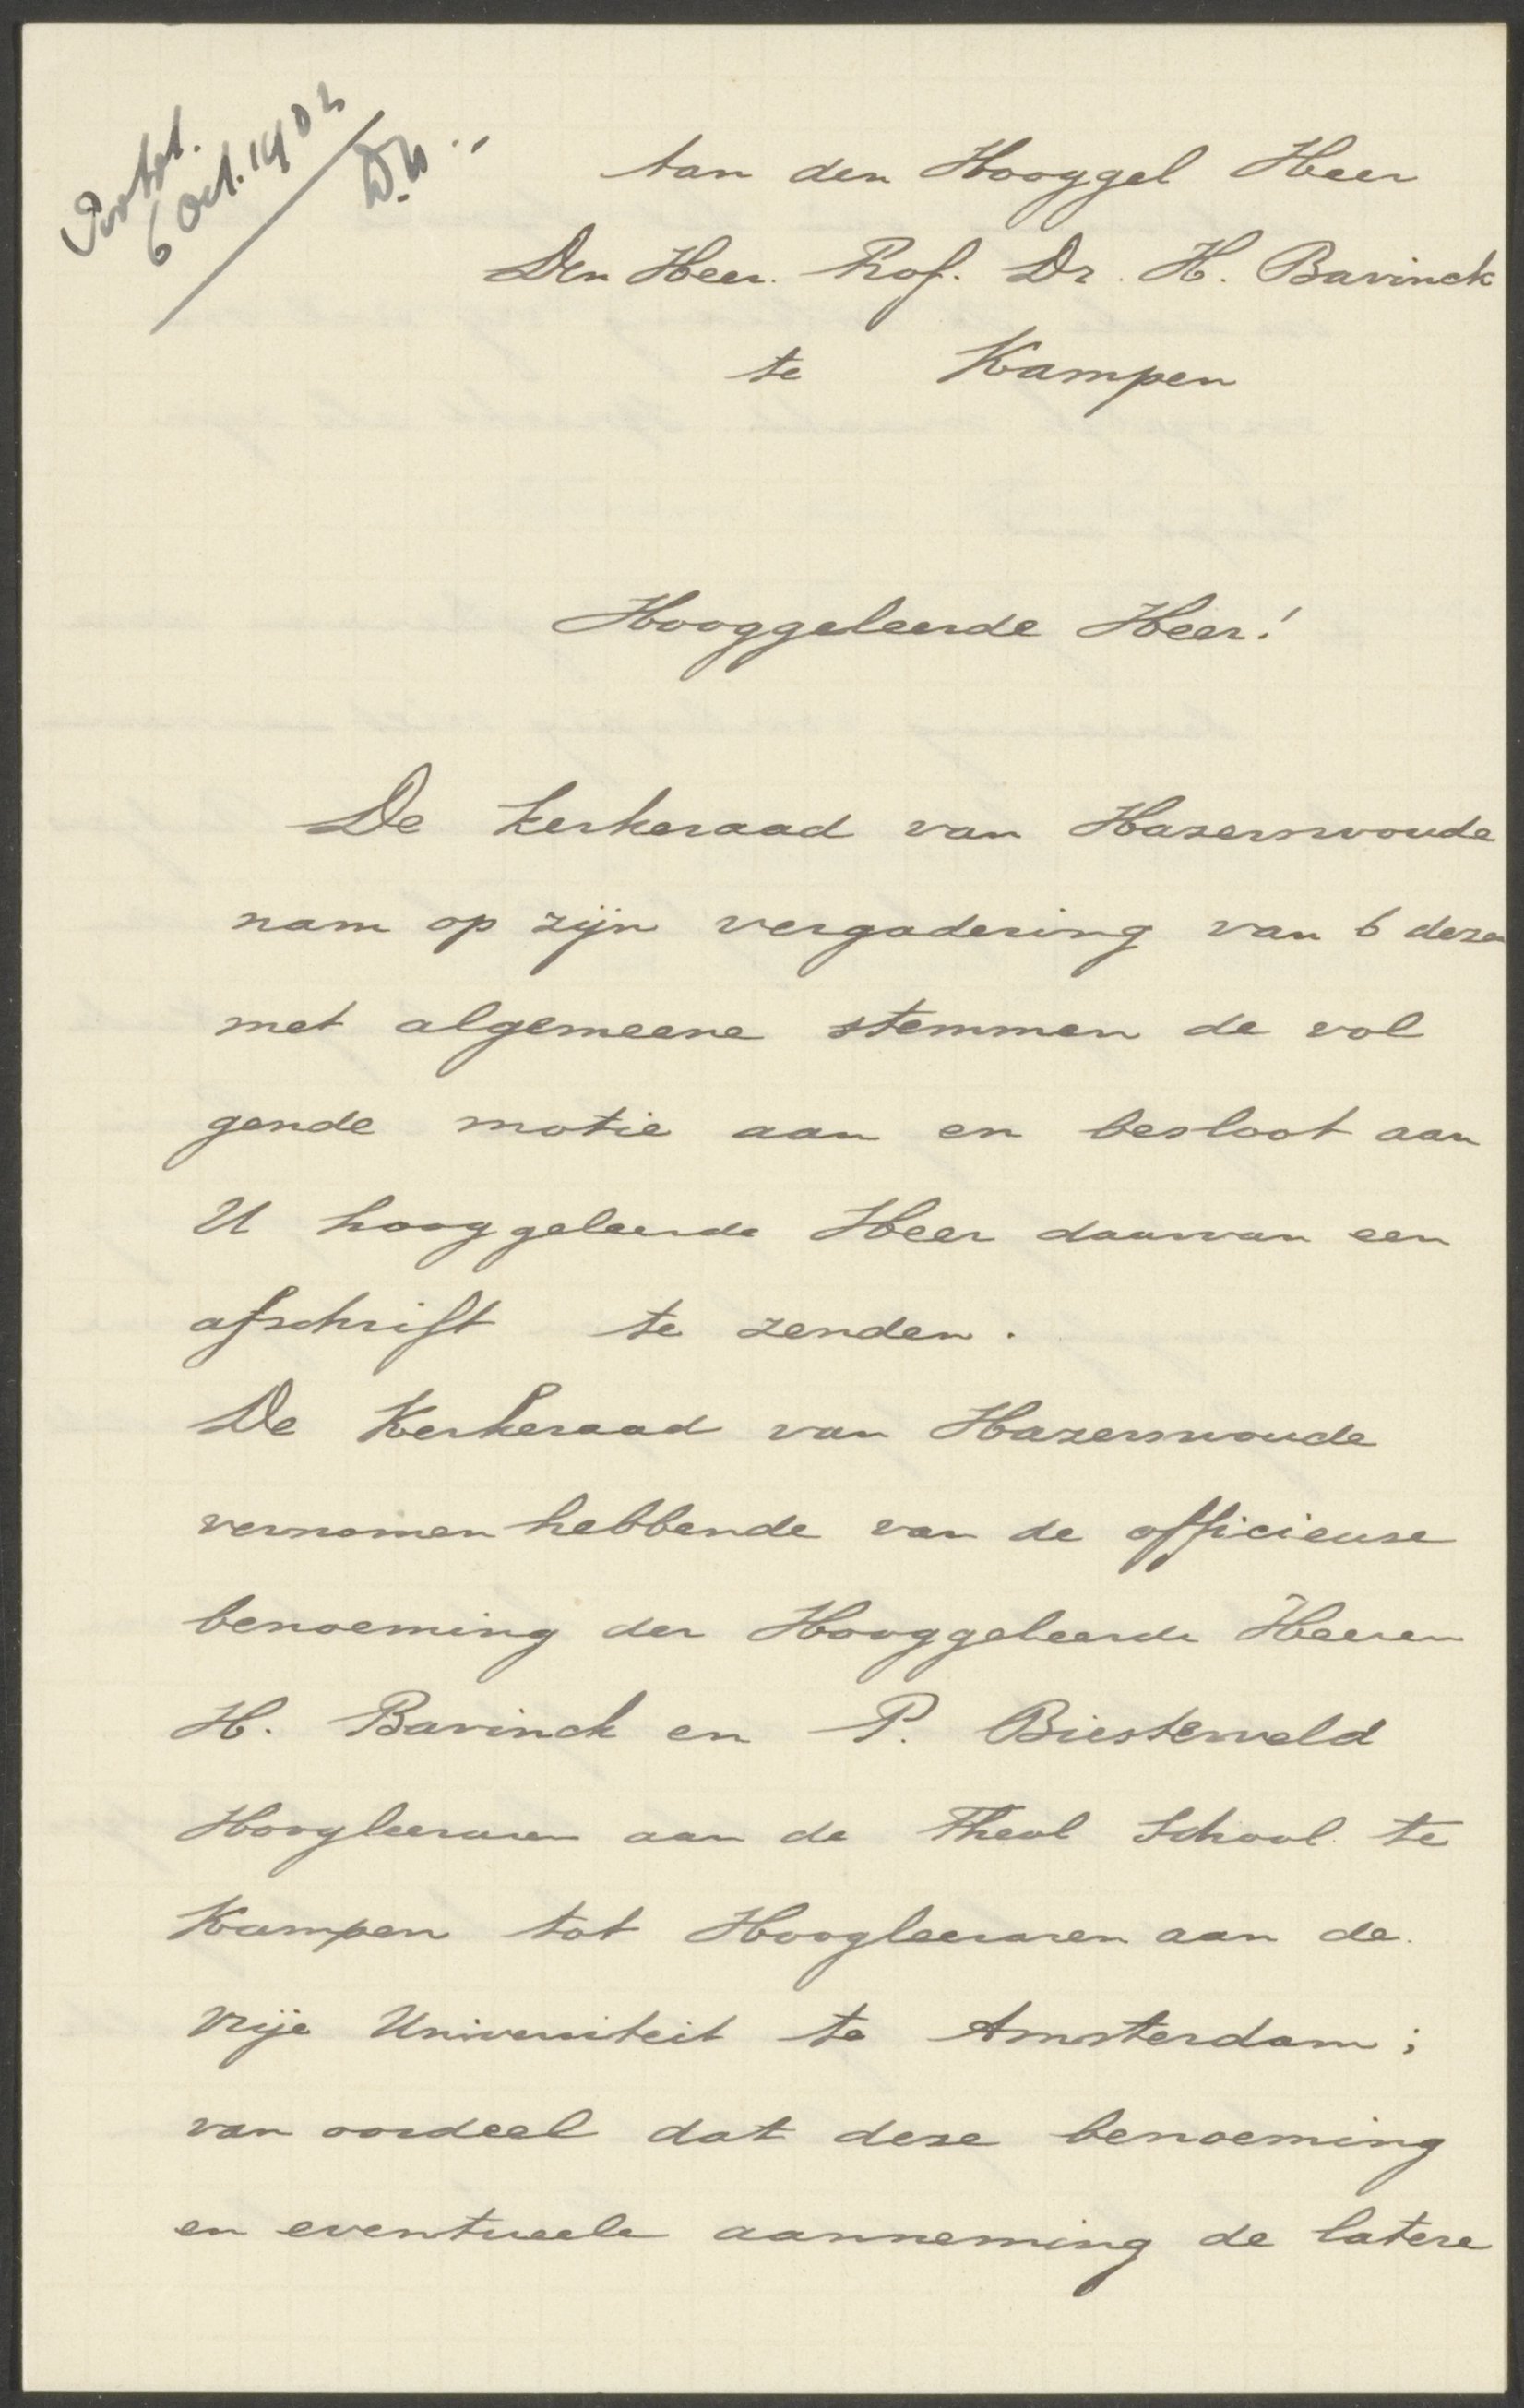 6 Oct. 1902
Aan den Hooggel Heer
Den Heer. Prof. Dr. H. Bavinck
te Kampen
Hooggeleerde Heer!
De kerkeraad van Hazerswoude
nam op zijn vergadering van 6 dezer
met algemeene stemmen de vol
gende motie aan en besloot aan
U hooggeleerde Heer daarvan een
afschrift te zenden.
De Kerkeraad van Hazerswoude
vernomen hebbende van de officieuse
benoeming der Hooggeleerde Heeren
H. Bavinck en P. Biesterveld
Hoogleeraren aan de Theol School te
Kampen tot Hoogleeraren aan de
Vrije Universiteit te Amsterdam;
van oordeel dat deze benoeming
en eventueele aanneming de latere